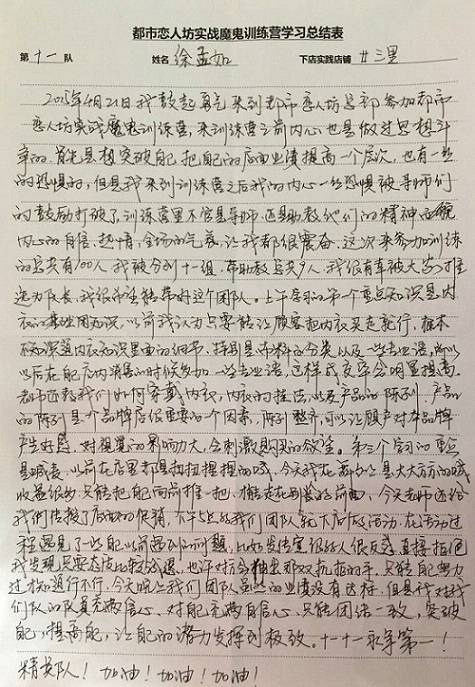 都市恋人坊实战魔鬼训练营学习总结表
第 十一 队 姓名 徐孟如 下店实践店铺 廿三里
2015年4月21日我鼓起勇气来到都市恋人坊总部参加都市
恋人坊实战魔鬼训练营，来训练营之前内心也是做过思想斗
争的，首先是想突破自己，把自己的店面业绩提高一个层次，也有一丝
的恐惧的，但是我来到训练营之后我的内心一丝恐惧被导师们
的鼓励打破了，训练营里不管是导师，还是助教他们的精神面貌
内心的自信、热情，全场的气氛，让我都很震奋。这次来参加训练
的总共有100人，我被分到十一组，带助教总共9人，我很有幸被大家推
选为队长，我很希望能带好这个团队。上午学习的第一个重点知识是内
衣的基础用知识，以前我认为只要能让顾客把内衣买走就行，根本
不知深道内衣知识里面的细节，特别是布料的分类以及一些专业语，所以
以后在自己店内销售的时候多加一些专业语，这样成交率会明显提高。
都市还教我们如何穿戴内衣，内衣的挂法，以及产品的陈列，产品
的陈列是个品牌店很重要的个因素，陈列整齐，可以让顾客对本品牌
产生好感，对视觉的影响力大，会刺激购买的欲望。第三个学习的重点
是喊麦，以前在店里都是扭扭捏捏的喊，今天我在苏
收益很多，只能把自己向前推一把，
我们传授了店面的促销，下午5点我们团队就下店做活动，在活动过
程遇见了一些自己以前遇到的问题，比如发传单很多人很反感，直接拒绝
我发现只要态度比较
过 就行不行，今天晚上我们团队虽然的业绩没有达标，但是我对我
们队的队员充满信心，对自己充满自信心，只能团结一致，突破
自己，提高自己，让自己的潜力发挥到极致。十一十一永争第一！
精英队！加油！加油！加油！